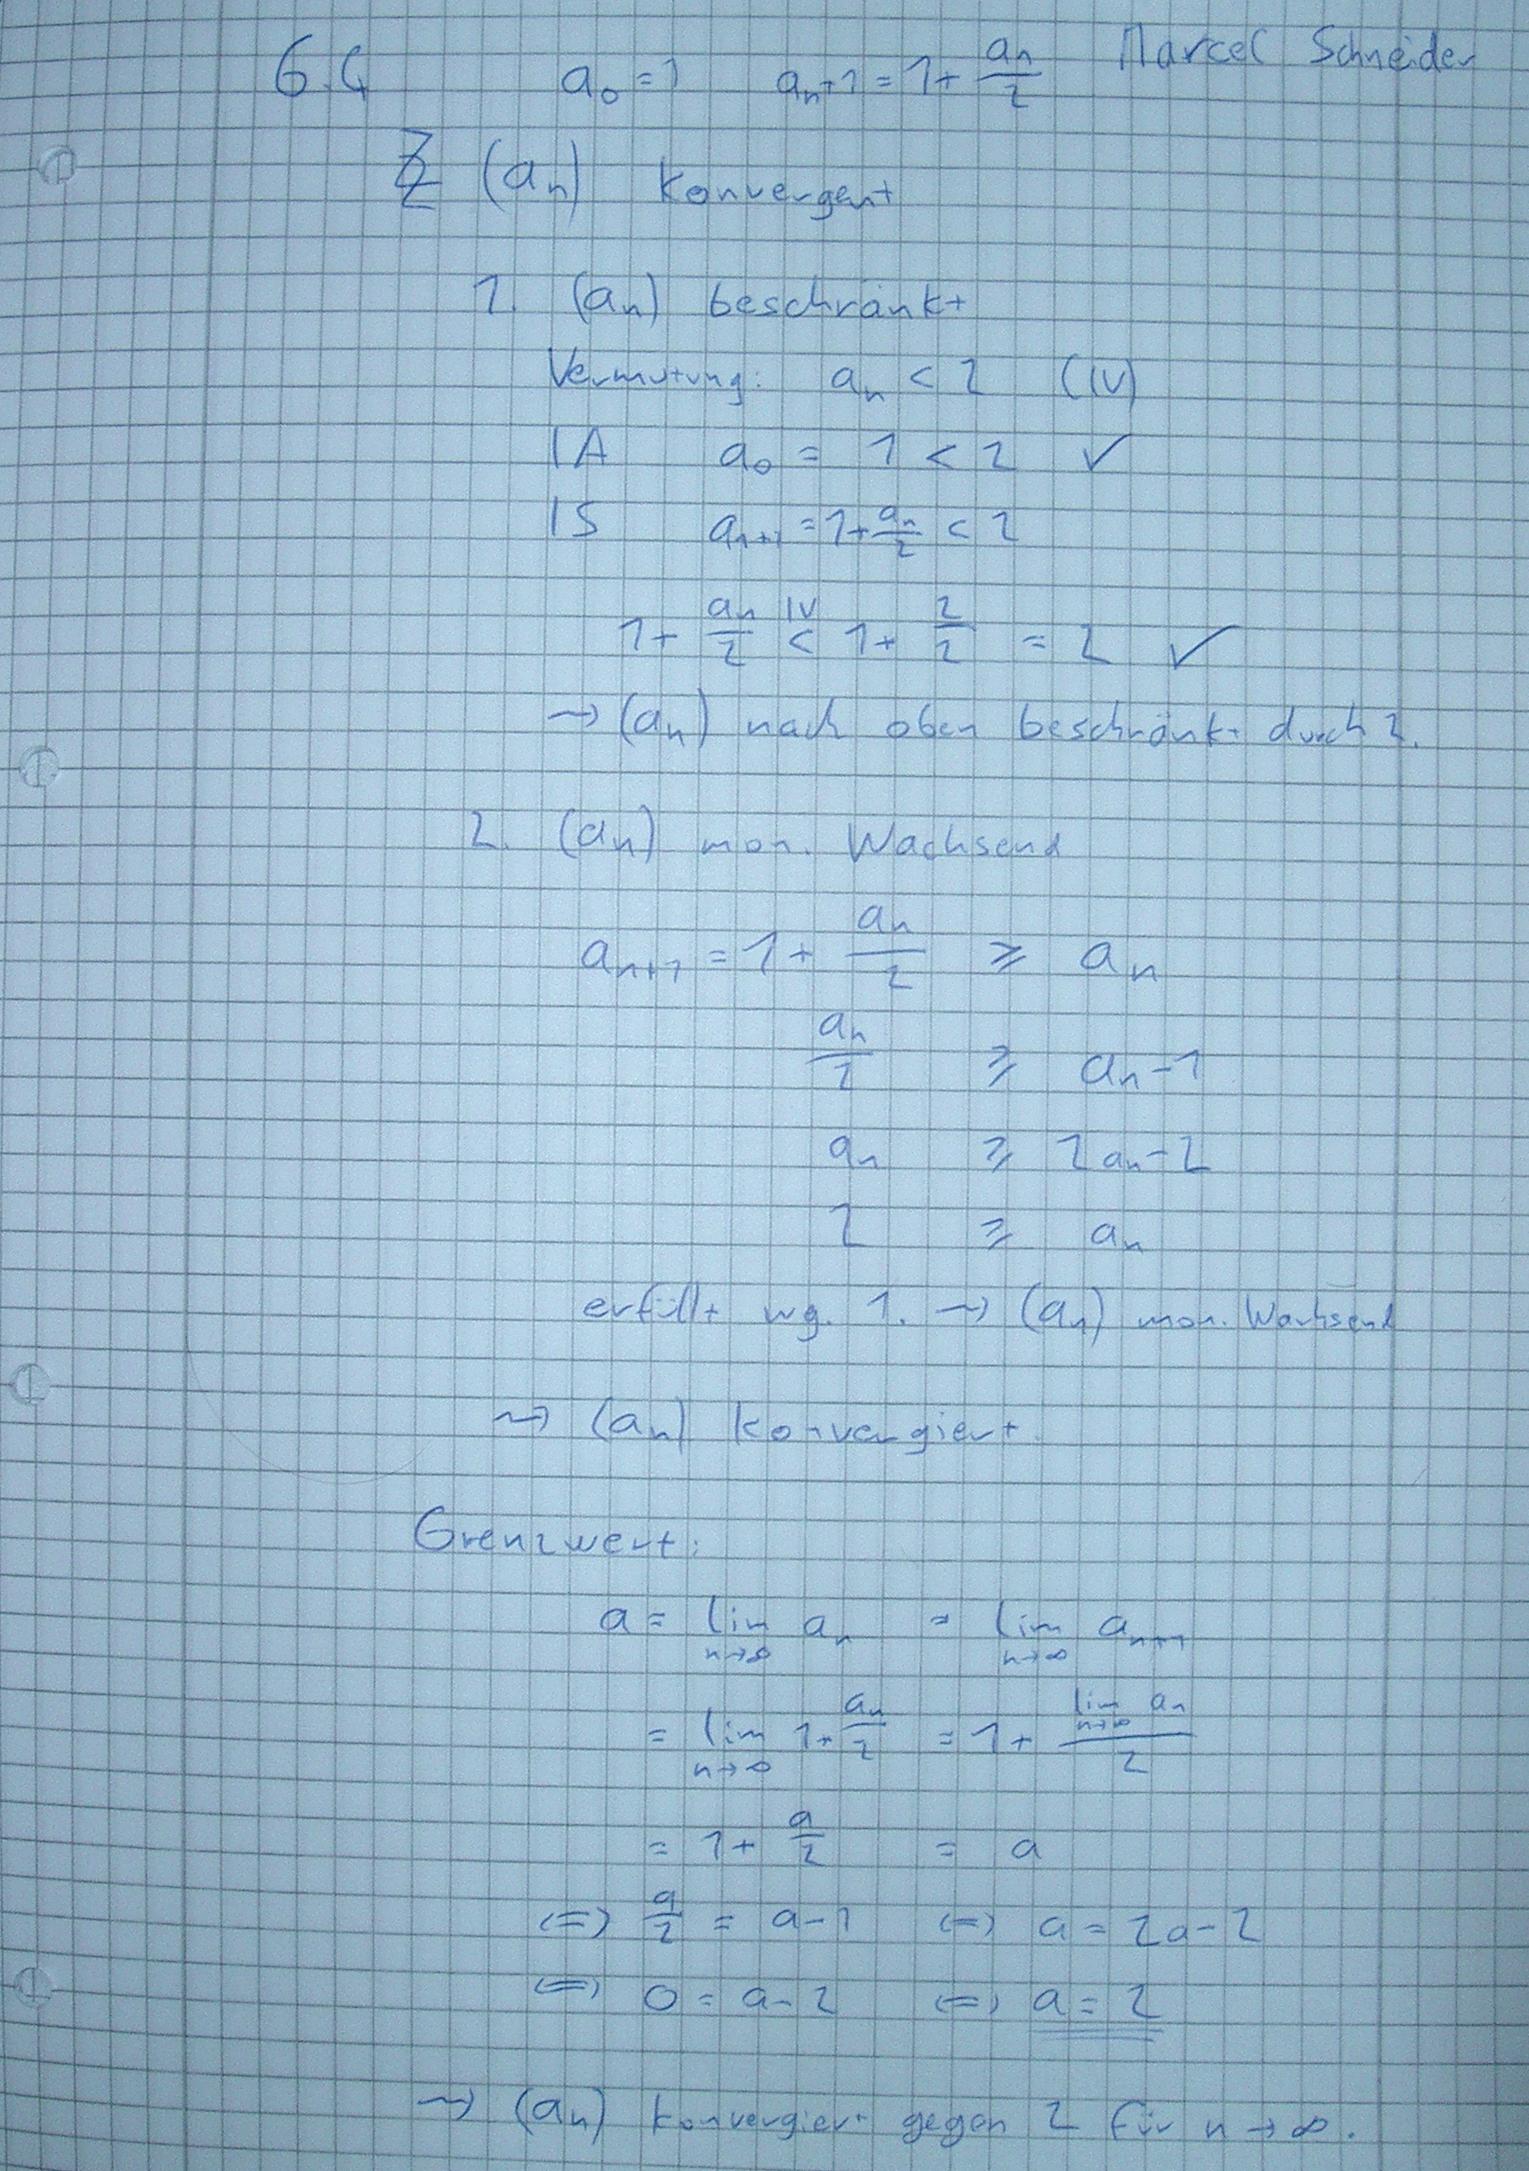 6.4 a₀ = 1 aₙ+1 = 1 + aₙ/2 Marcel Schneider
ZZ (aₙ) konvergent
1. (aₙ) beschränkt
Vermutung: aₙ < 2 (IV)
IA a₀ = 1 < 2 ✓
IS aₙ₊₁ = 1 + aₙ/2 < 2
1 + aₙ/2 <^IV 1 + 2/2 = 2 ✓
⇝ (aₙ) nach oben beschränkt durch 2.
2. (aₙ) mon. Wachsend
aₙ₊₁ = 1 + aₙ/2 ⩾ aₙ
aₙ/2 ⩾ aₙ - 1
aₙ ⩾ 2aₙ - 2
2 ⩾ aₙ
erfüllt wg. 1. ⇝ (aₙ) mon. Wachsend
⇝ (aₙ) konvergiert.
Grenzwert:
a = lim n→∞ aₙ = lim n→∞ aₙ₊₁
= lim n→∞ 1 + aₙ/2 = 1 + (lim n→∞ aₙ)/2
= 1 + a/2 = a
⇔ a/2 = a - 1 ⇔ a = 2a - 2
⇔ 0 = a - 2 ⇔ a = 2
⇝ (aₙ) konvergiert gegen 2 für n → ∞.